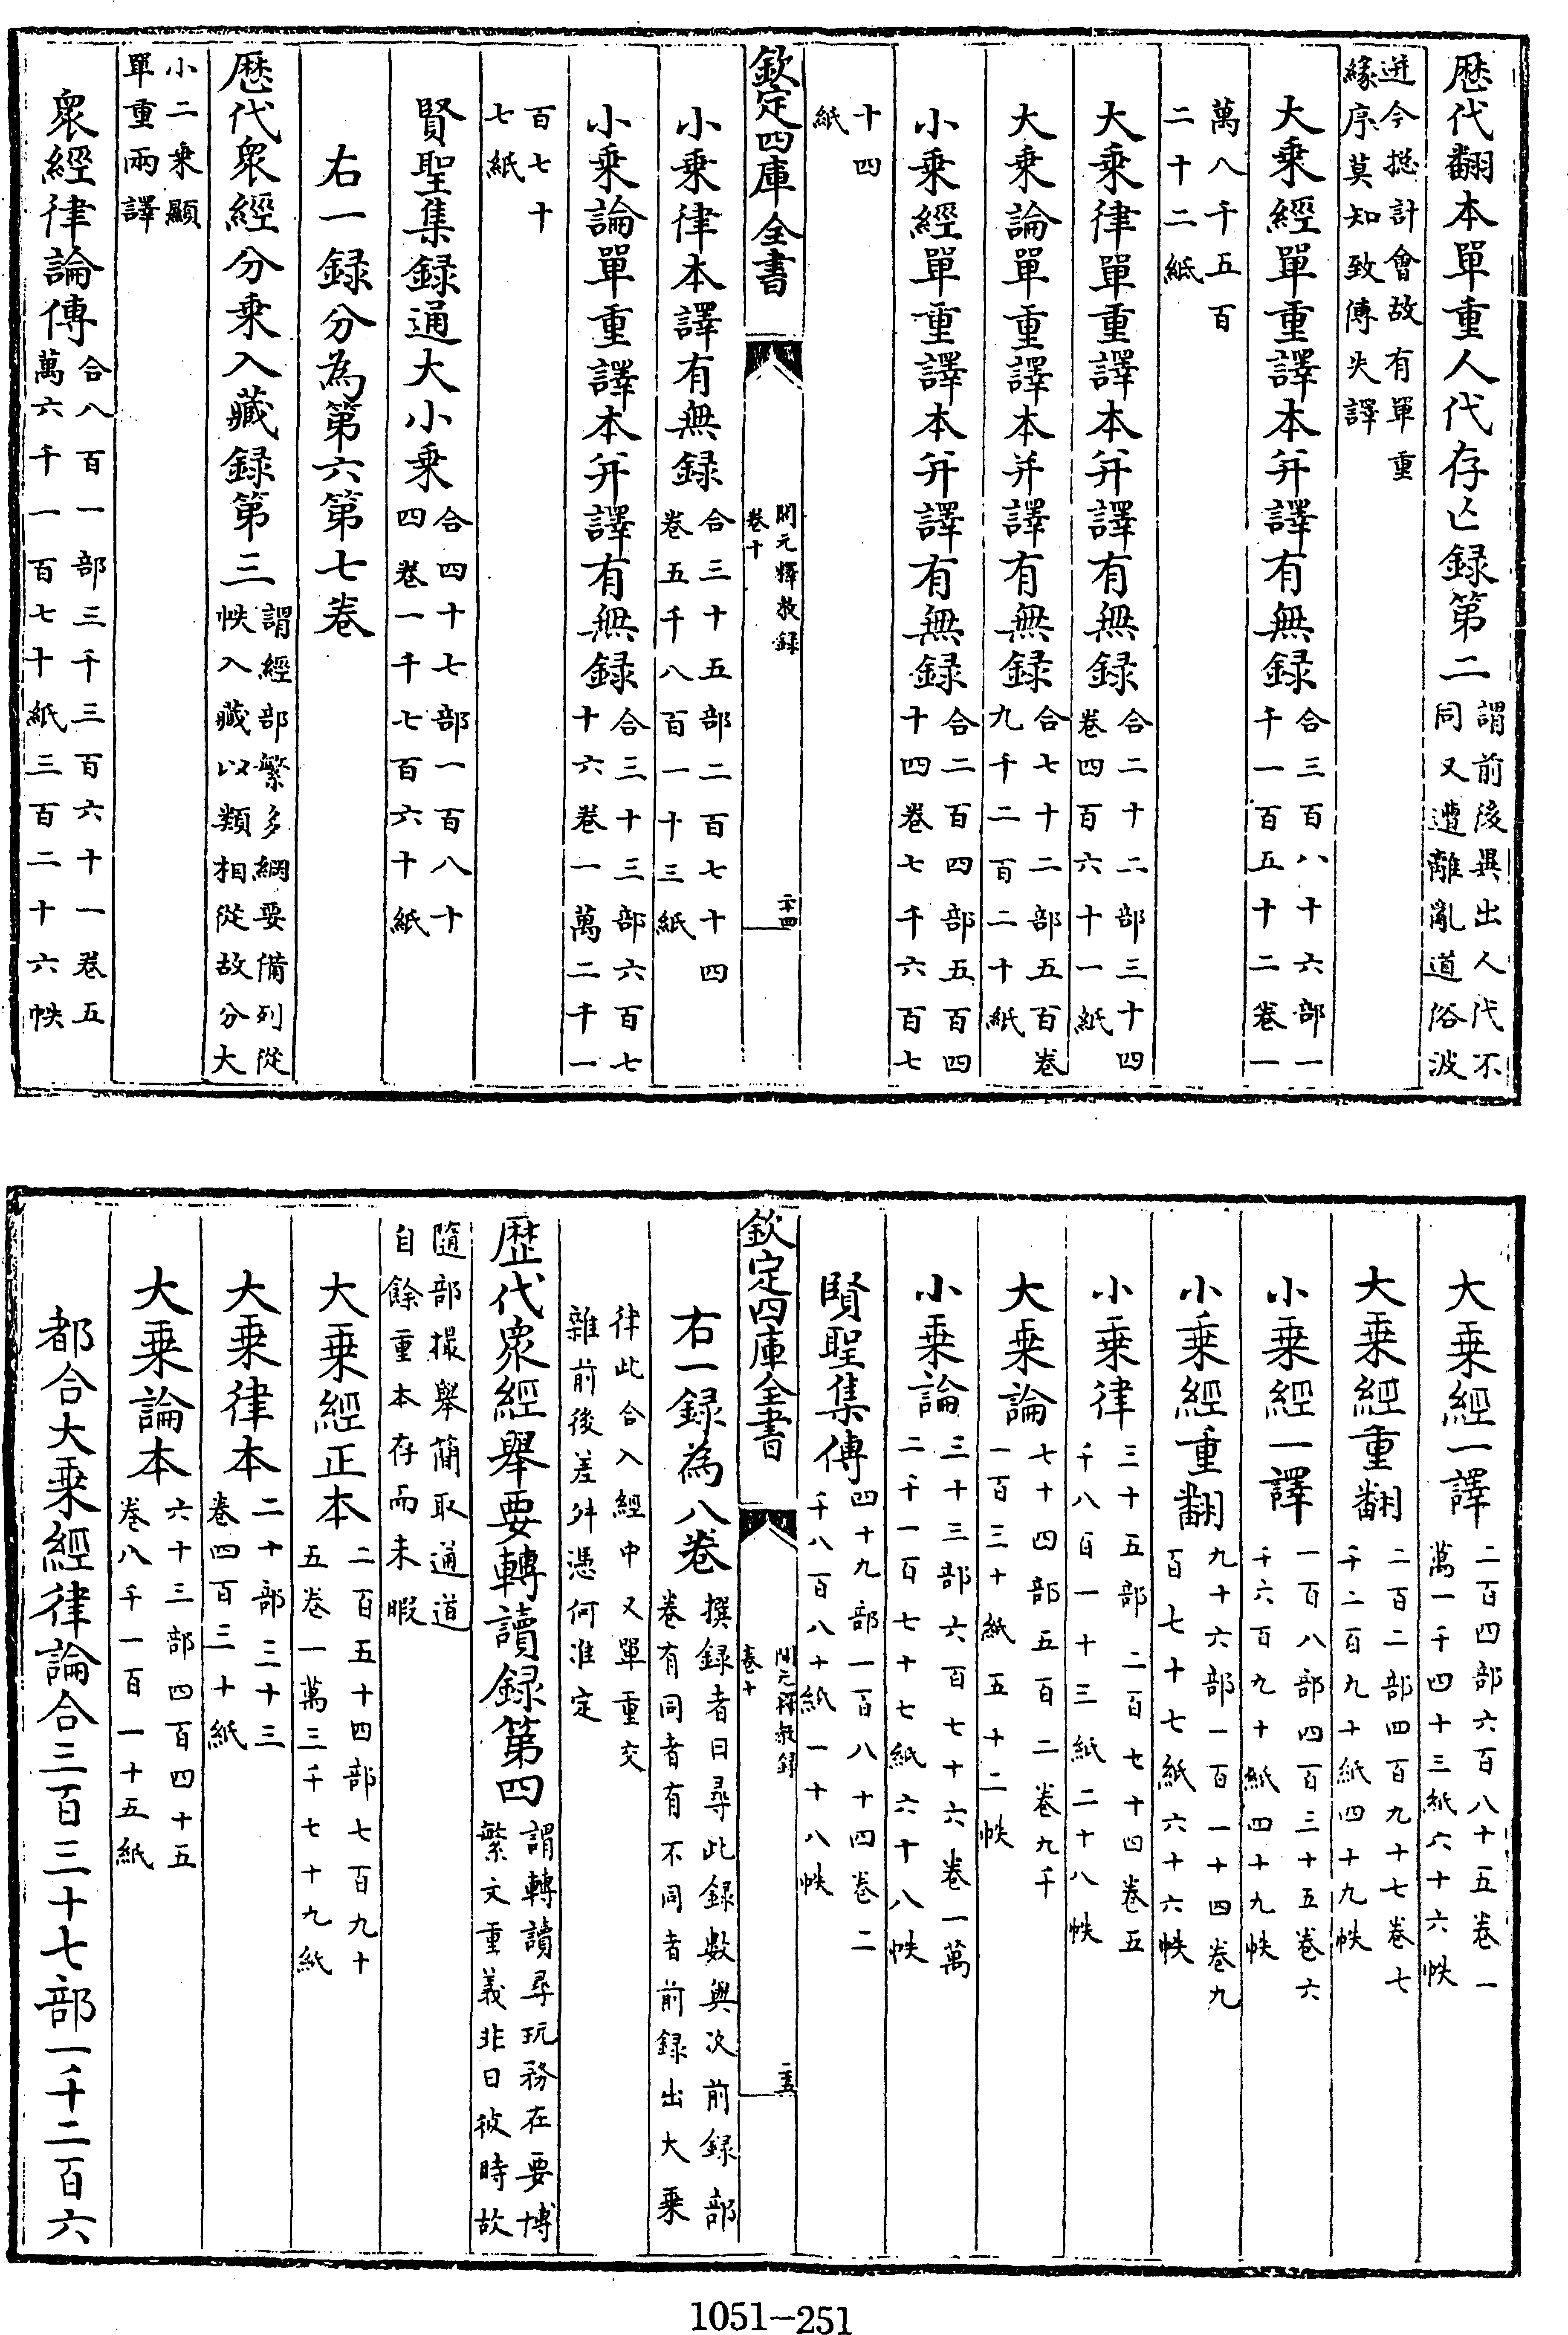 歴代翻本單重人代存亡録第二謂前後異出人代不
同又遭離亂道俗波
迸今揔計會故有單重
緣序莫知致傳失譯
大乗經單重譯本并譯有無録合三百八十六部一
千一百五十二卷一
萬八千五百
二十二紙
大乗律單重譯本并譯有無録合二十二部三十四
卷四百六十一紙
大乗論單重譯本并譯有無録合七十二部五百卷
九千二百二十紙
小乗經單重譯本并譯有無録合二百四部五百四
十四卷七千六百七
十四
紙
欽定四庫全書
開元釋教録
卷十
二十四
小乗律本譯有無録合三十五部二百七十四
卷五千八百一十三紙
小乗論單重譯本并譯有無録合三十三部六百七
十六卷一萬二千一
百七十
七紙
賢聖集録通大小乗合四十七部一百八十
四卷一千七百六十紙
右一録分為第六第七卷
歴代衆經分乗入藏録第三謂經部繁多綱要備列從
帙入藏以類相從故分大
小二乗顯
單重兩譯
衆經律論傳合八百一部三千三百六十一卷五
萬六千一百七十紙三百二十六帙
大乗經一譯二百四部六百八十五卷一
萬一千四十三紙六十六帙
大乗經重翻二百二部四百九十七卷七
千二百九十紙四十九帙
小乗經一譯一百八部四百三十五卷六
千六百九十紙四十九帙
小乗經重翻九十六部一百一十四卷九
百七十七紙六十六帙
小乗律三十五部二百七十四卷五
千八百一十三紙二十八帙
大乗論七十四部五百二卷九千
一百三十紙五十二帙
小乗論三十三部六百七十六卷一萬
二千一百七十七紙六十八帙
賢聖集傳四十九部一百八十四卷二
千八百八十紙一十八帙
欽定四庫全書
開元釋教録
卷十
二十五
右一録為八卷撰録者曰尋此録數與次前録部
卷有同者有不同者前録出大乗
律此合入經中又單重交
雜前後差舛憑何准定
歴代衆經舉要轉讀録第四謂轉讀尋玩務在要博
繁文重義非曰彼時故
隨部撮舉簡取通道
自餘重本存而未暇
大乗經正本二百五十四部七百九十
五卷一萬三千七十九紙
大乗律本二十部三十三
卷四百三十紙
大乗論本六十三部四百四十五
卷八千一百一十五紙
都合大乗經律論合三百三十七部一千二百六
1051-251